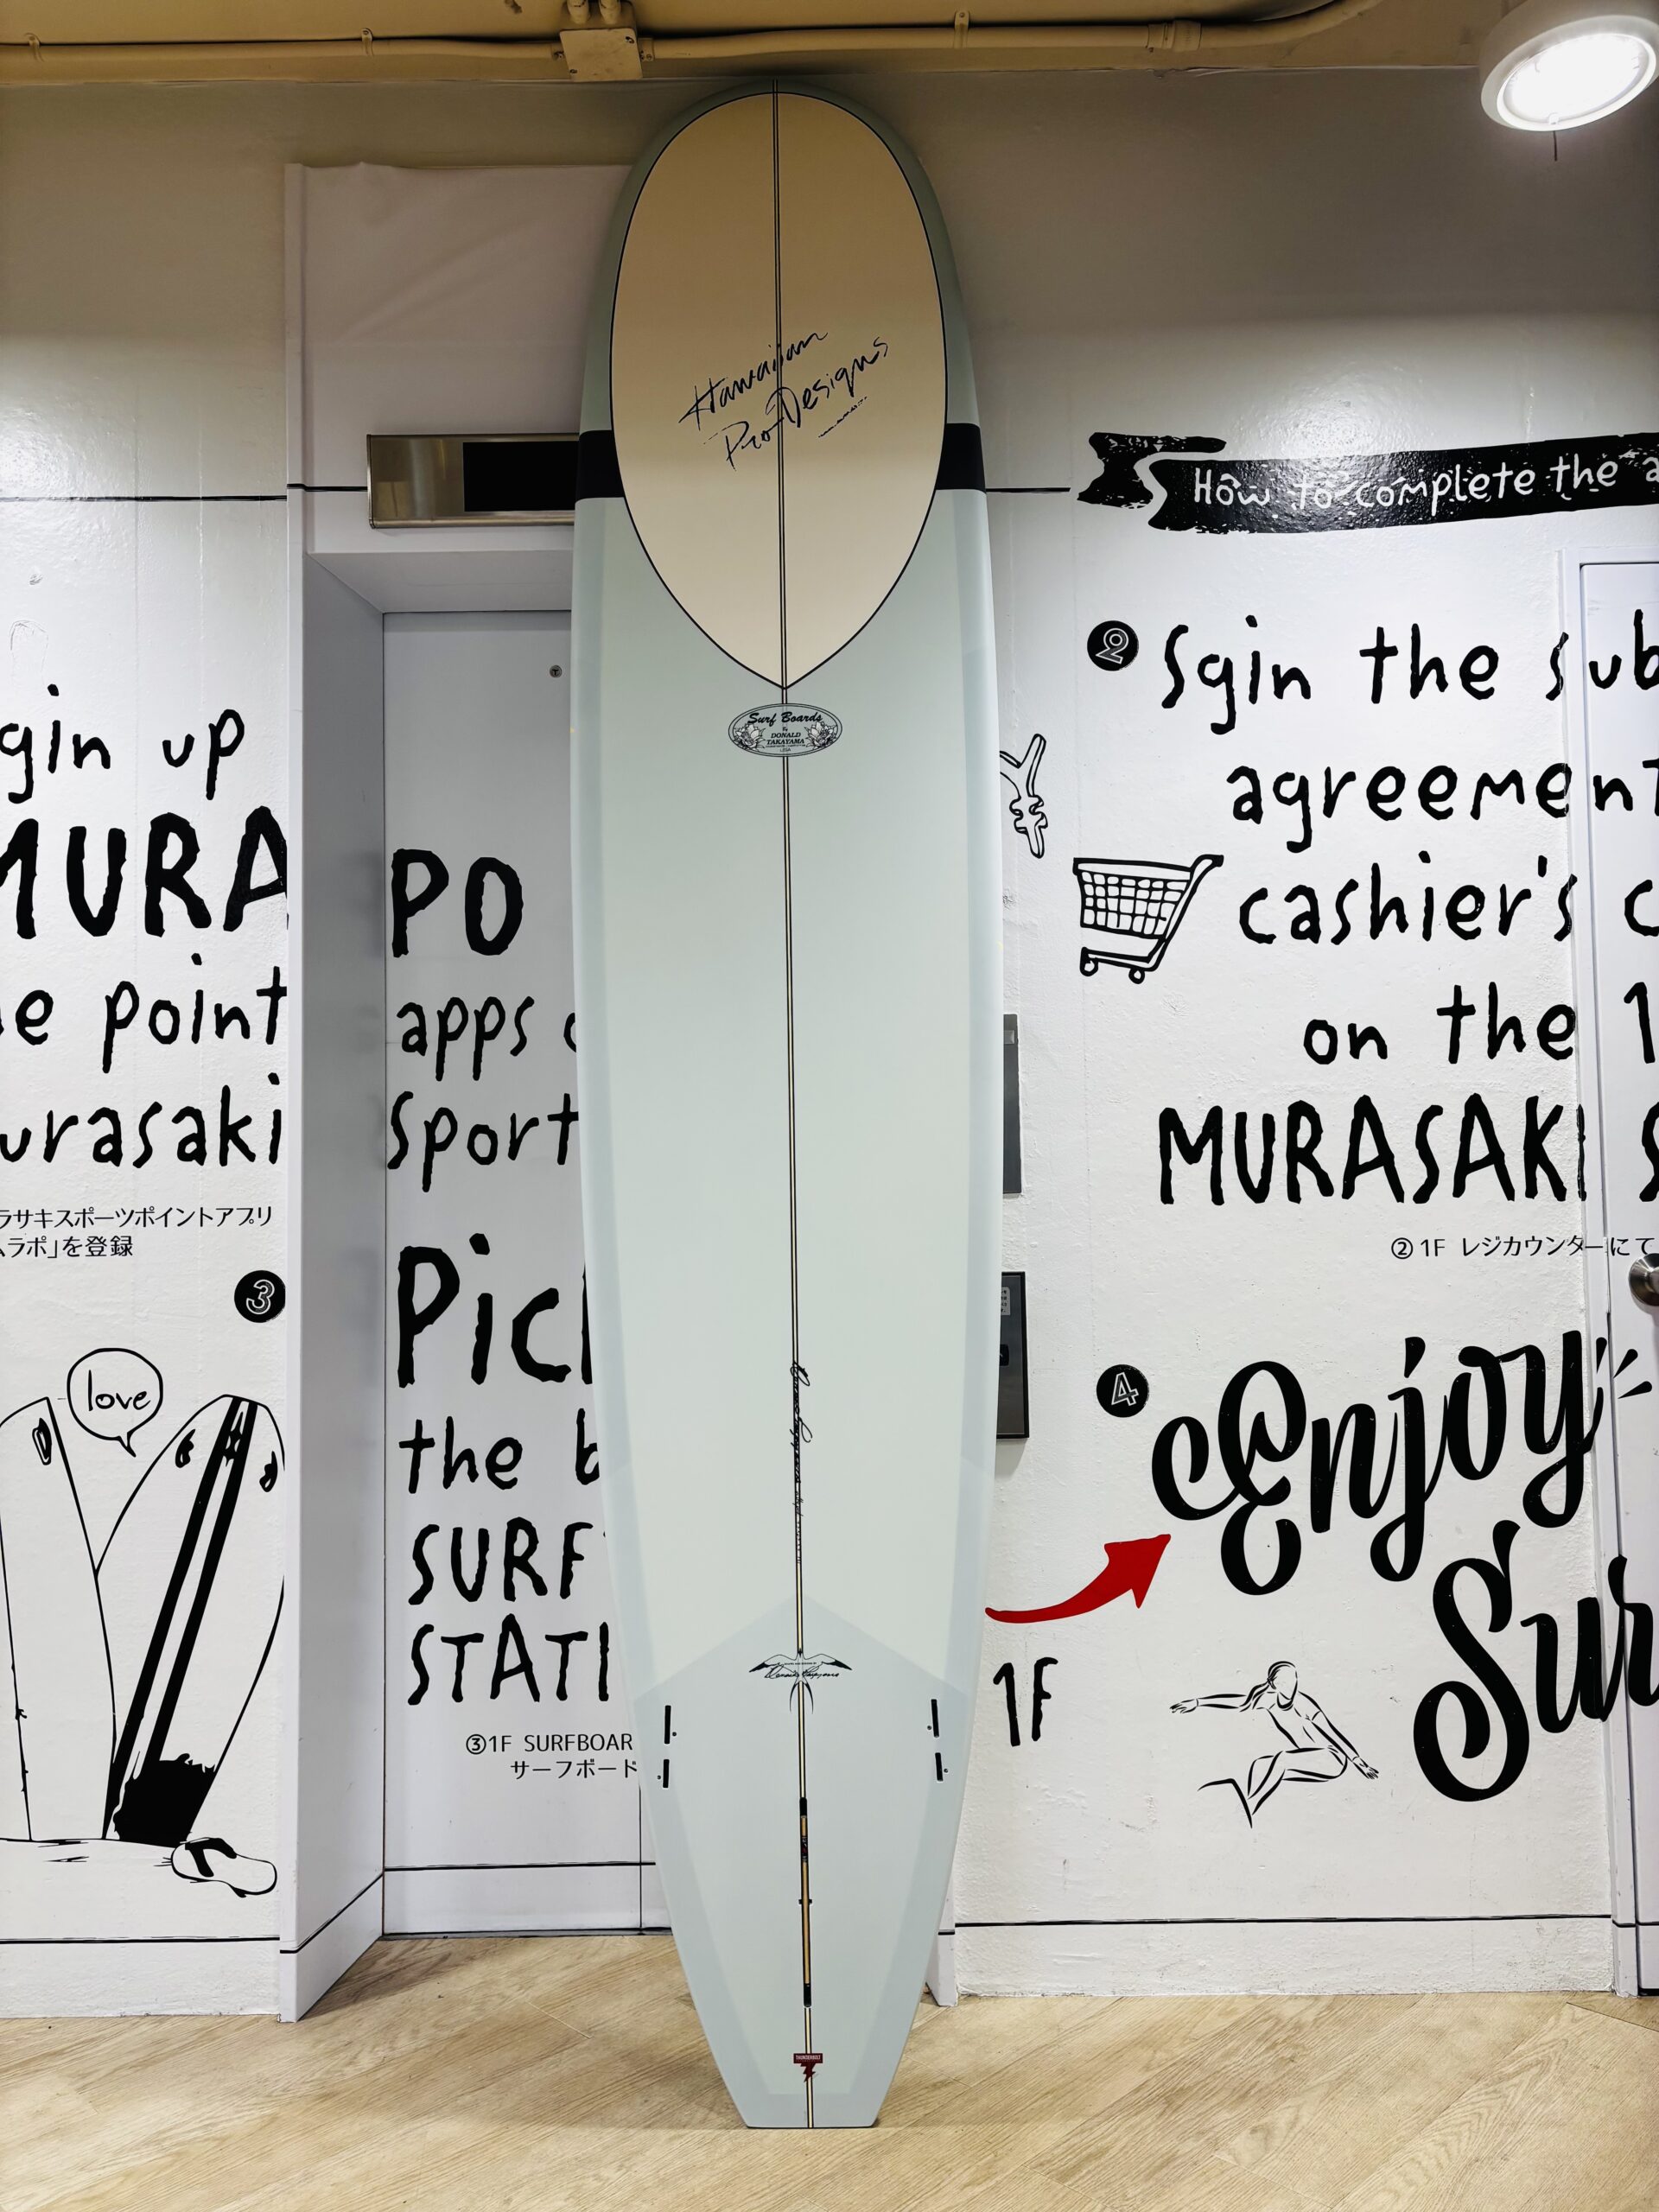 Hawaiian
Pro Designs
Surf Boards
by
DONALD
TAKAYAMA
THUNDERBOLT
gin up
MURA
PO
e point
apps
urasaki
Sport
ラサキスポーツポイントアプリ
ラポ」を登録
3
love
Pic
the b
SURF
STATI
③1F SURFBOAR
サーフボード
How to complete the a
2
Sgin the sub
agreement
cashier's c
on the 1
MURASAKI S
② 1F レジカウンターにて
4
Enjoy
Sur
1F
¥